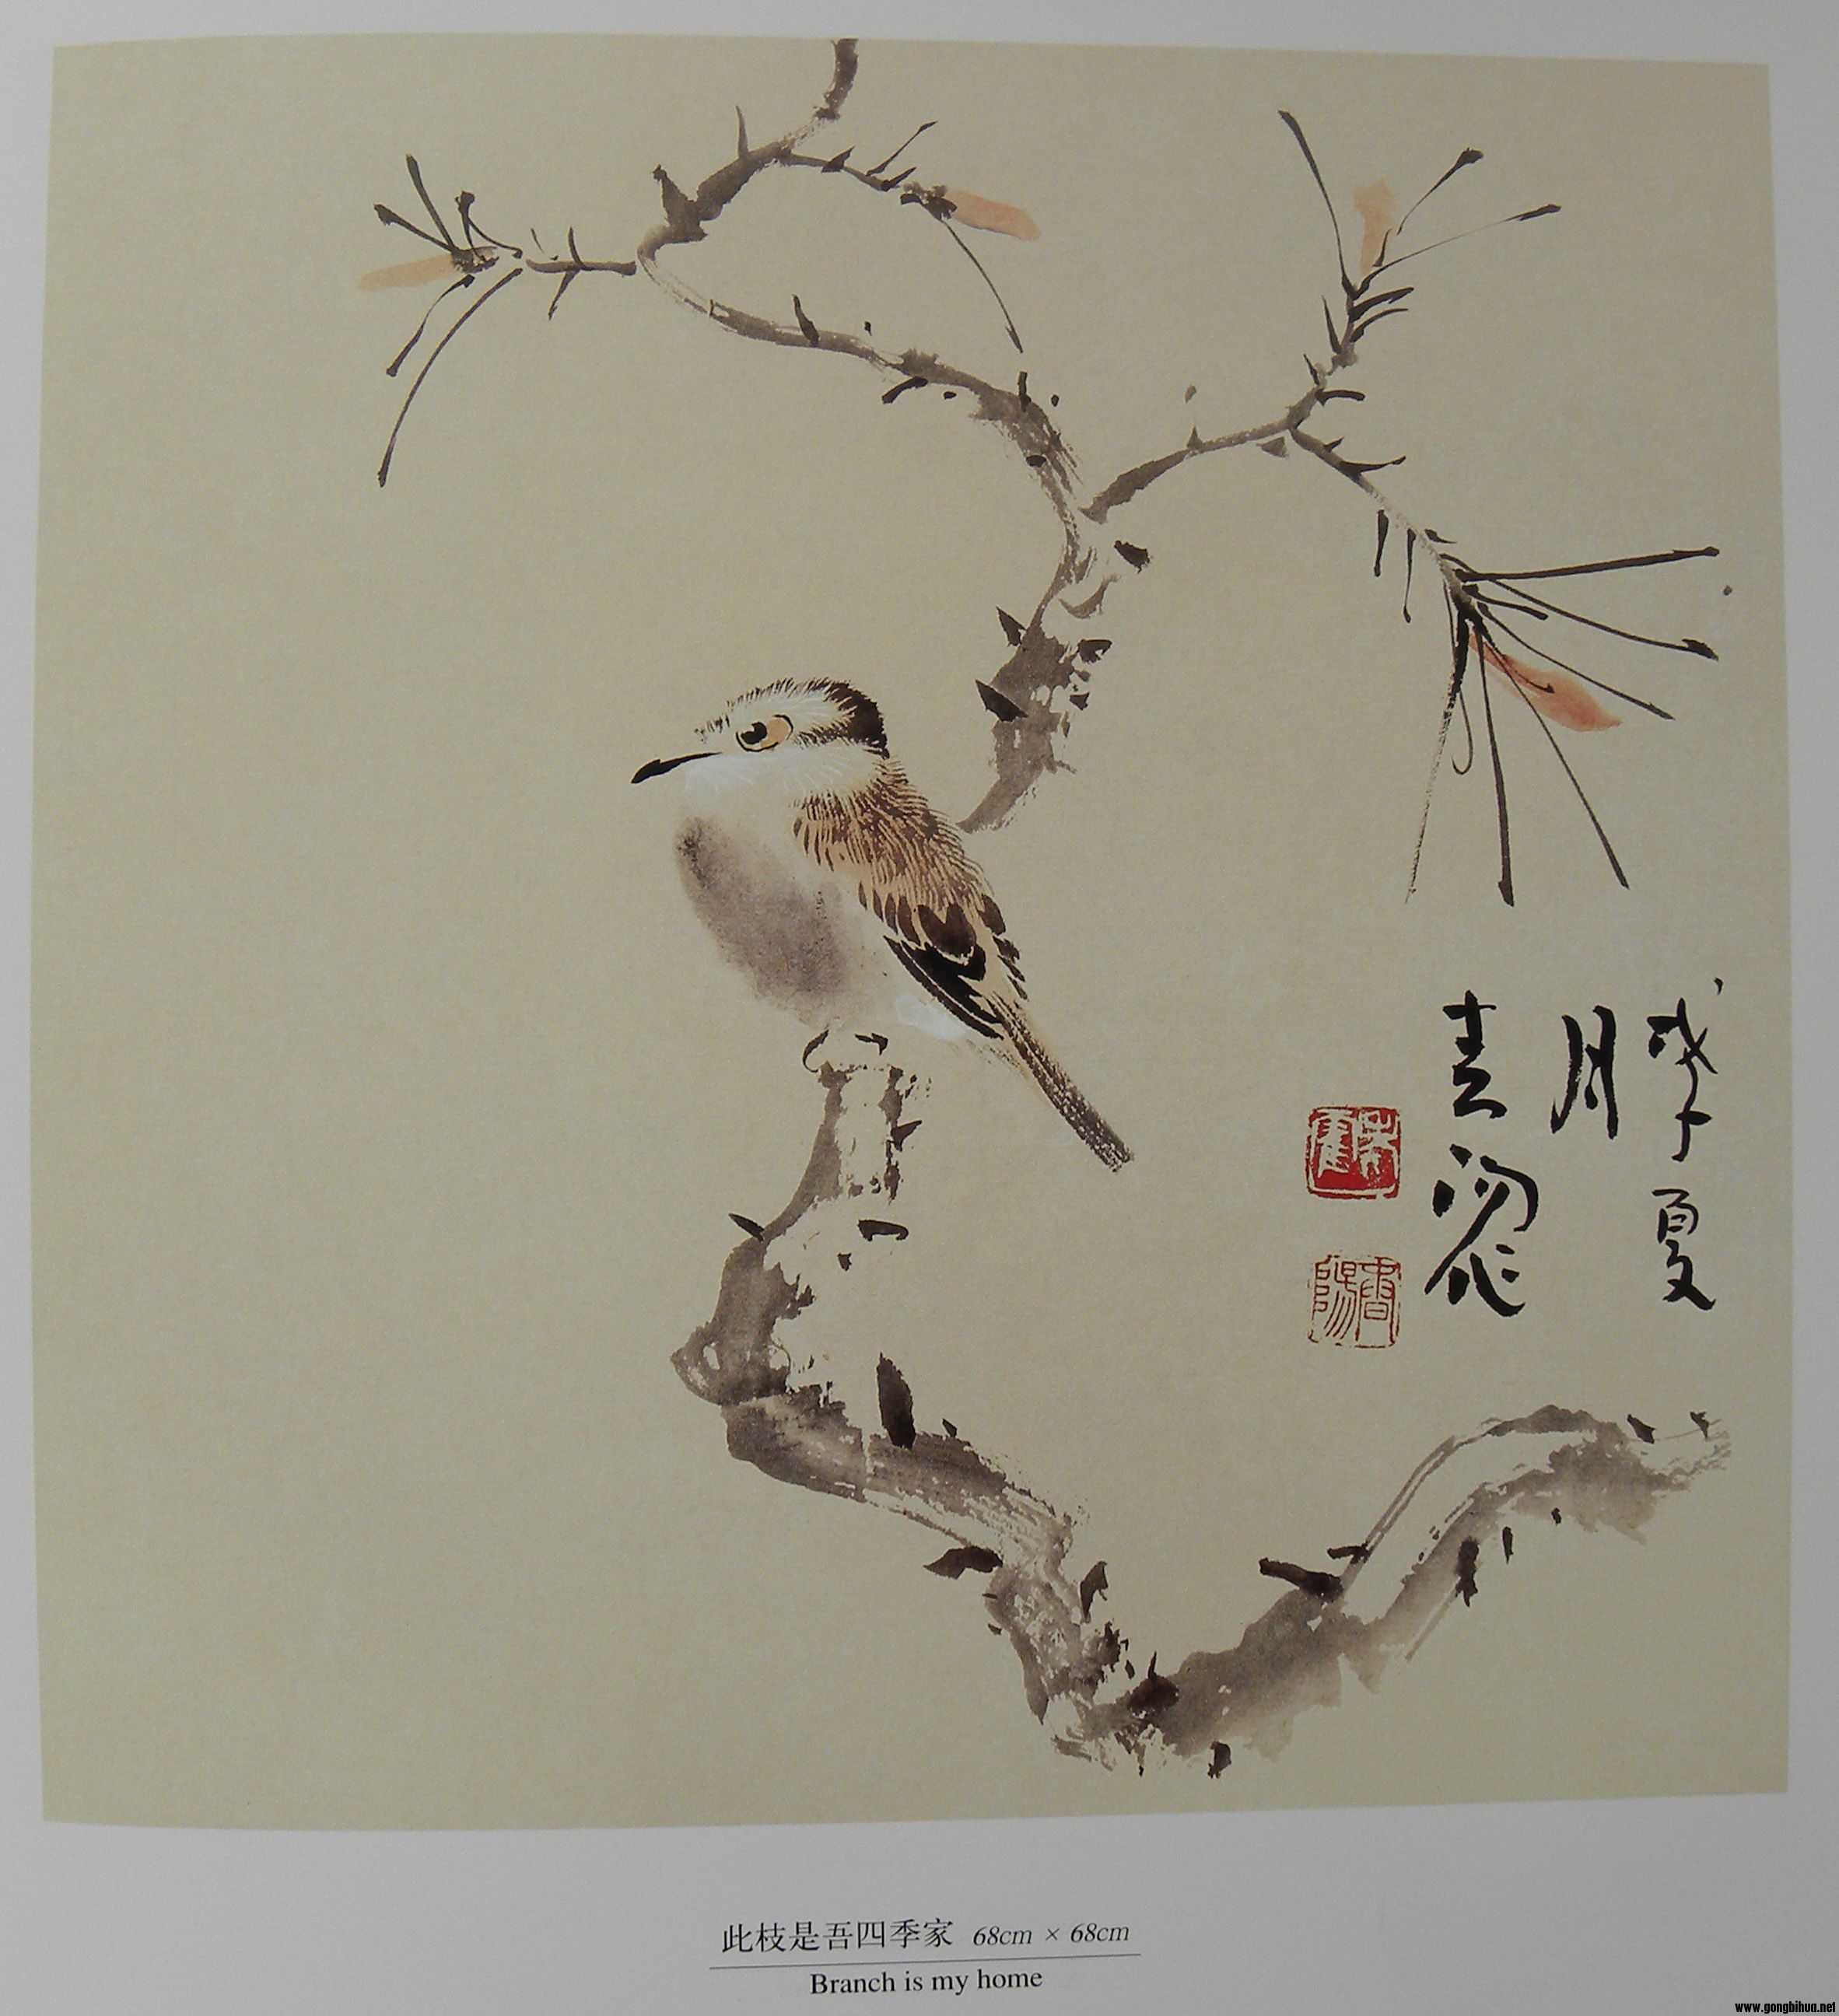 戊子夏
月
書陽作
書陽
此枝是吾四季家 68cm × 68cm
Branch is my home
www.gongbihua.net